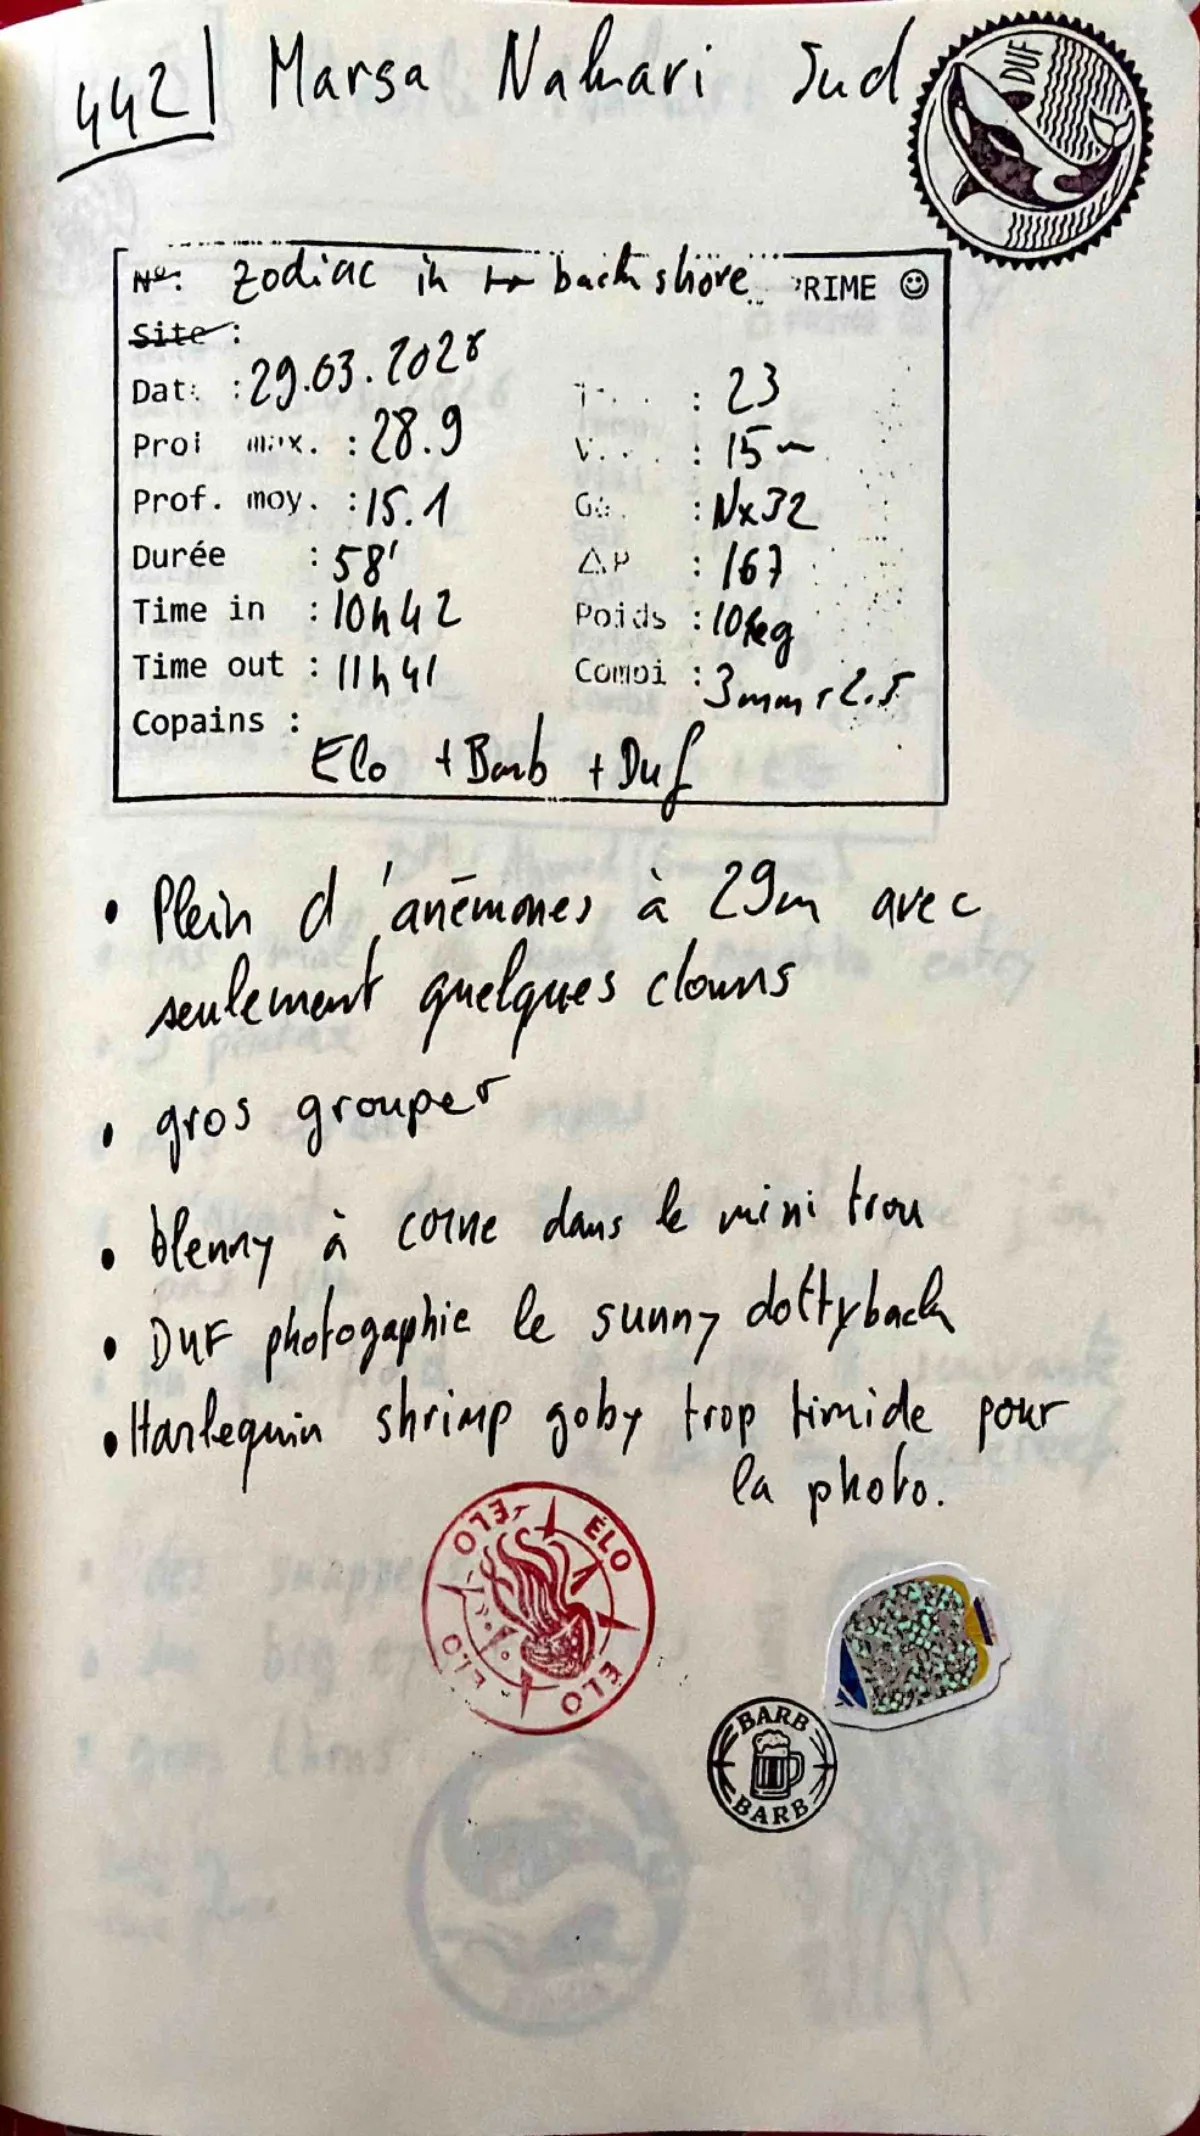 442 Marsa Nakari Sud
DUF
N°: zodiac in back shore RIME ☺
Site :
Dat. : 29.03.2026
Prof max. : 28.9
Prof. moy. : 15.1
Durée : 58'
Time in : 10h42
Time out : 11h41
Copains :
Elo + Barb + Duf
T... : 23
V... : 15m
Ga. : Nx32
ΔP : 167
Poids : 10kg
Combi : 3mm + 2.5
• Plein d'anémones à 29m avec
seulement quelques clowns
• gros grouper
• blenny à corne dans le mini trou
• DUF photogaphie le sunny dottyback
• Harlequin shrimp goby trop timide pour
la photo.
ÉLO ÉLO ÉLO ÉLO
BARB
BARB